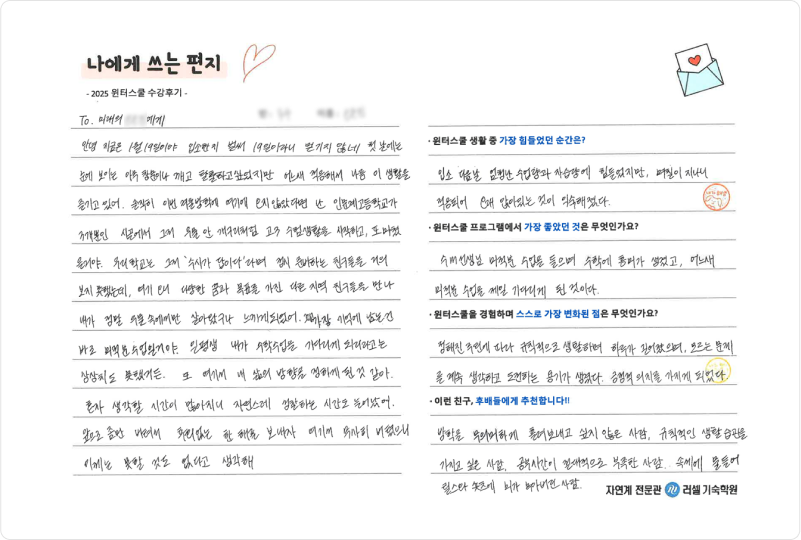 나에게 쓰는 편지
- 2025 윈터스쿨 수강후기 -
To. 미래의 에게
안녕 지금은 1월 19일이야 입소한지 벌써 19일이라니 믿기지 않네! 첫 날에는
눈에 보이는 아무 탈출하고싶었지만 어느새 적응해서 나름 이 생활을
즐기고 있어. 솔직히 이번 겨울방학에 여기에 오지 않았다면 난 인문계고등학교가
3개뿐인 시골에서 그저 우물 안 개구리처럼 고3 수험생활을 시작하고, 또 마쳤
을거야. 우리학교는 그저 '수시가 답이다'라며 정시 준비하는 친구들을 거의
보지 못했는데, 여기 오니 다양한 꿈과 목표를 가진 다른 지역 친구들을 만나
내가 정말 우물 속에서만 살아왔구나 느끼게되었어. 가장 기억에 남는건
바로 미적분 수업인거야. 일평생 내가 수학수업을 기다리게 되리라고는
상상치도 못했거든. 또 여기서 내 삶의 방향을 정하게 된 것 같아.
혼자 생각할 시간이 많아지니 자연스레 성찰하는 시간도 늘어났어.
앞으로 좀만 버텨서 후회없는 한 해를 보내자 여기서 무사히 버텼으니
이제는 못할 것도 없다고 생각해
· 윈터스쿨 생활 중 가장 힘들었던 순간은?
입소 다음날 엄청난 수업량과 자습량에 힘들었지만, 며칠이 지나니
적응되어 오래 앉아있는 것이 익숙해졌다.
· 윈터스쿨 프로그램에서 가장 좋았던 것은 무엇인가요?
선생님 미적분 수업을 들으며 수학에 흥미가 생겼고, 어느새
미적분 수업을 제일 기다리게 된 것이다.
· 윈터스쿨을 경험하며 스스로 가장 변화된 점은 무엇인가요?
정해진 루틴에 따라 규칙적으로 생활하며 하루가 길어졌으며, 모르는 문제
를 계속 생각하고 도전하는 용기가 생겼다. 긍정적 의지를 가지게 되었다.
· 이런 친구, 후배들에게 추천합니다!!
방학을 무의미하게 흘려보내고 싶지 않은 사람, 규칙적인 생활습관을
가지고 싶은 사람, 공부시간이 절대적으로 부족한 사람, 속세에 물들어
릴스나 쇼츠에 뇌가 녹아버린 사람.
자연계 전문관 러셀 기숙학원